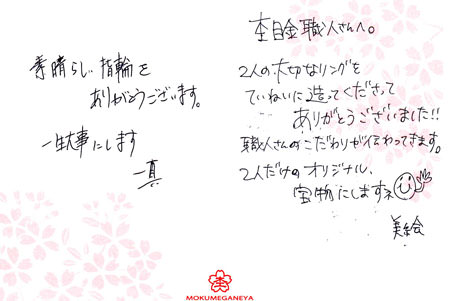 素晴らしい指輪を
ありがとうございます。
一生大事にします
一真
杢目金職人さんへ。
2人の大切なリングを
ていねいに造ってくださって
ありがとうございました!!
職人さんのこだわりが伝わってきます。
2人だけのオリジナル、
宝物にしますネ
美絵
MOKUMEGANEYA